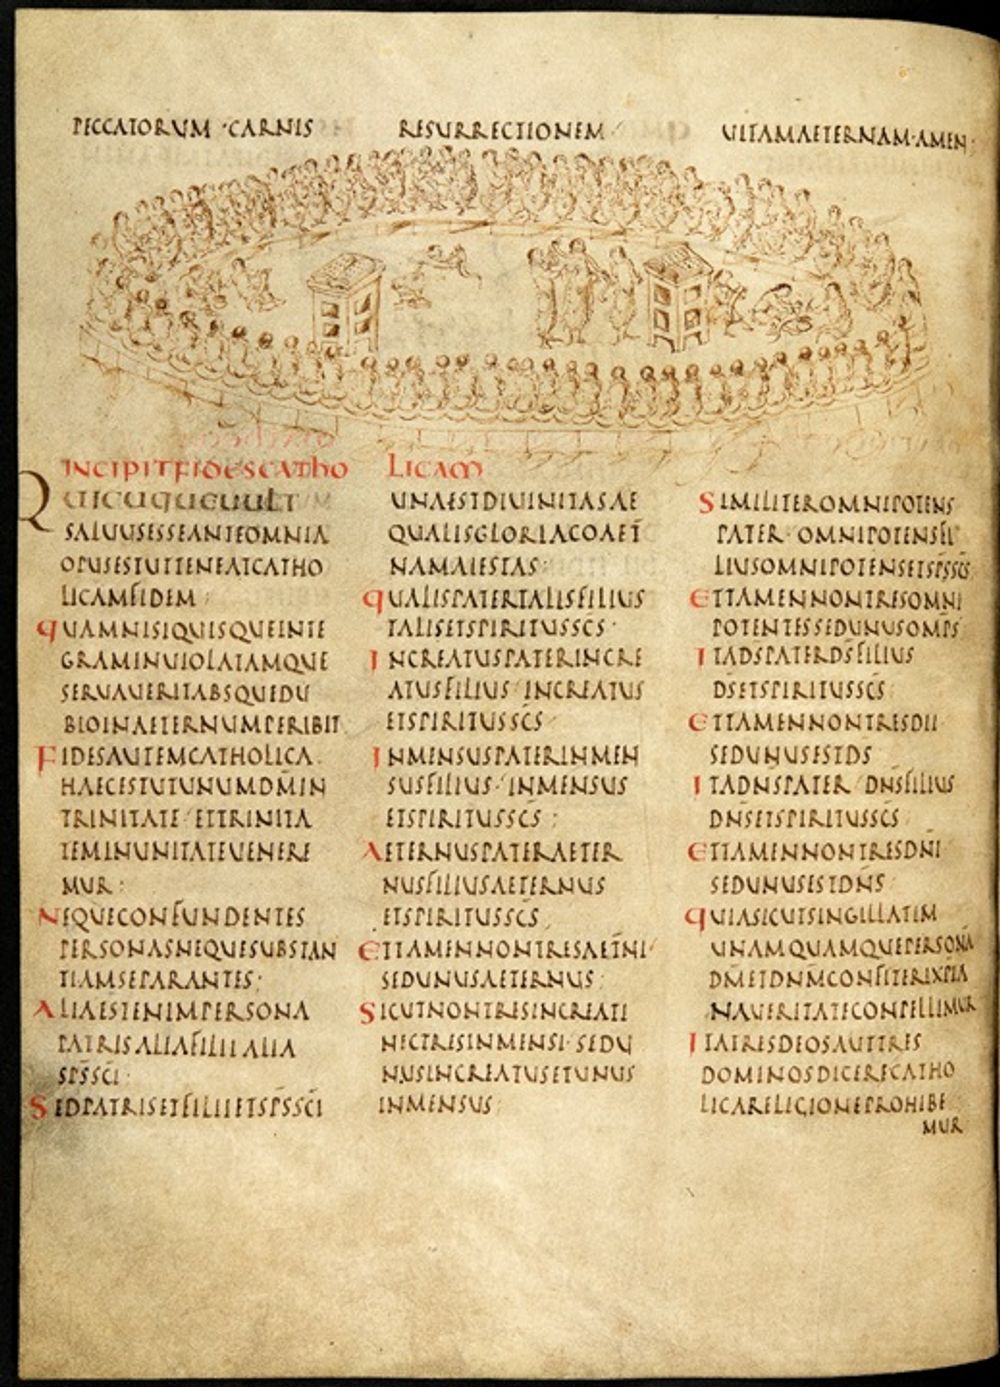 PECCATORUM · CARNIS RESURRECTIONEM UITAMAETERNAM·AMEN
INCIPITFIDESCATHO LICAM
QUICUQUEUULT
SALUUSESSEANTEOMNIA
OPUSESTUTTENEATCATHO
LICAMFIDEM
QUAMNISIQUISQUEINTE
GRAMINUIOLATAMQUE
SERUAUERITABSQUEDU
BIOINAETERNUMPERIBIT
FIDESAUTEMCATHOLICA
HAECESTUTUNUMDM̄IN
TRINITATE·ETTRINITA
TEMINUNITATEUENERE
MUR:
NEQUECONFUNDENTES
PERSONASNEQUESUBSTAN
TIAMSEPARANTES·
ALIAESTENIMPERSONA
PATRISALIAFILIIALIA
SP̄SSC̄I·
SEDPATRISETFILIIETSP̄SSC̄I
UNAESTDIUINITASAE
QUALISGLORIACOAET̄
NAMAIESTAS·
QUALISPATERTALISFILIUS
TALISETSPIRITUSSC̄S·
INCREATUSPATERINCRE
ATUSFILIUS·INCREATUS
ETSPIRITUSSC̄S
INMENSUSPATERINMEN
SUSFILIUS·INMENSUS
ETSPIRITUSSC̄S:
AETERNUSPATERAETER
NUSFILIUSAETERNUS
ETSPIRITUSSC̄S
ETTAMENNONTRESAET̄NI·
SEDUNUSAETERNUS·
SICUTNONTRESINCREATI
NECTRESINMENSI·SEDU
NUSINCREATUSETUNUS
INMENSUS
SIMILITEROMNIPOTENS
PATER·OMNIPOTENSFI
LIUSOMNIPOTENSETSP̄SSC̄S
ETTAMENNONTRESOMNI
POTENTESSEDUNUSOMP̄S
ITADS̄PATERDS̄FILIUS
DS̄ETSPIRITUSSC̄S
ETTAMENNONTRESDII
SEDUNUSESTDS
ITADN̄SPATER·DN̄SFILIUS
DN̄SETSPIRITUSSC̄S
ETTAMENNONTRESDN̄I
SEDUNUSESTDN̄S
QUIASICUTSINGILLATIM
UNAMQUAMQUEPERSONĀ
DM̄ETDNM̄CONFITERIXP̄IA
NAUERITATECONPELLIMUR
ITATRESDEOSAUTTRES
DOMINOSDICERECATHO
LICARELIGIONEPROHIBE
MUR